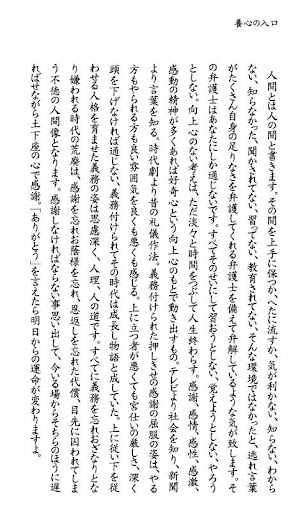 養心の入口
人間とは人の間と書きます。その間を上手に保つか、へたに流すか、気が利かない、知らない、わから
ない、知らなかった、聞かされてない、習ってない、教育されてない、そんな環境ではなかったと、逃れ言葉
がたくさん自身の足りなさを弁護してくれる弁護士を備えて弁解しているような気が致します。そ
の弁護士はあなたにしか通じないです。すべてそのせいにして習おうとしない、覚えようとしない、やろう
としない。向上心のない考えは、ただ淡々と時間をつぶして人生終わらす。感謝、感情、感性、感激、
感動の精神が多くあれば好奇心という向上心のもとで動き出すもの。テレビより社会を知り、新聞
より言葉を知る。時代劇より昔の礼儀作法。義務付けられた押しきせの感謝の屈服の姿は、やる
方もやられる方も良い雰囲気を良くも悪くも感じる。上に立つ者が悪くても宮仕いの厳しさ、深く
頭を下げなければ通じない、義務付けられてその時代は成長し物語と成していた。上に従い下を従
わせる人格を育ませた義務の姿は思慮深く、人、理、人の道です。すべてに義務を忘れおざなりとな
り嫌われる時代の荒廃は、感謝を忘れお陰様を忘れ、恩返しを忘れた代償、目先に囚われてしま
う不徳の人間像となります。感謝しなければならない事思い出して、今いる場からそちらのほうに遅
ればせながら土下座の心で感謝。「ありがとう」を言えたら明日からの運命が変わりますよ。